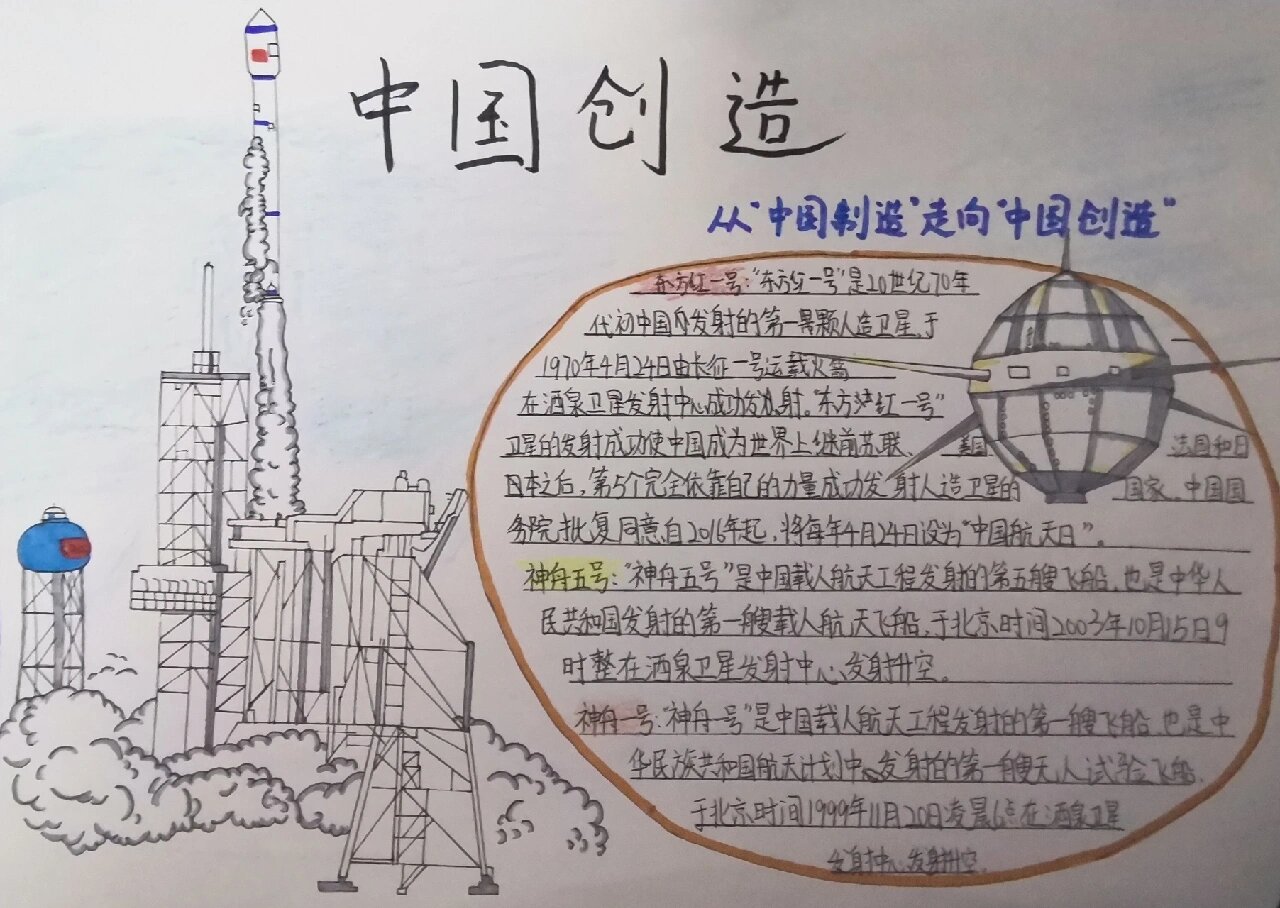 中国创造
从"中国制造"走向"中国创造"
东方红一号:"东方红一号"是20世纪70年
代初中国发射的第一颗人造卫星,于
1970年4月24日由长征一号运载火箭
在酒泉卫星发射中心成功发射。"东方红一号"
卫星的发射成功使中国成为世界上继前苏联、美国 法国和日
日本之后,第5个完全依靠自己的力量成功发射人造卫星的 国家。中国国
务院批复同意自2016年起,将每年4月24日设为"中国航天日"。
神舟五号:"神舟五号"是中国载人航天工程发射的第五艘飞船,也是中华人
民共和国发射的第一艘载人航天飞船,于北京时间2003年10月15日9
时整在酒泉卫星发射中心发射升空。
神舟一号:"神舟一号"是中国载人航天工程发射的第一艘飞船,也是中
华民族共和国航天计划中发射的第一艘无人试验飞船,
于北京时间1999年11月20日凌晨6点在酒泉卫星
发射中心发射升空。